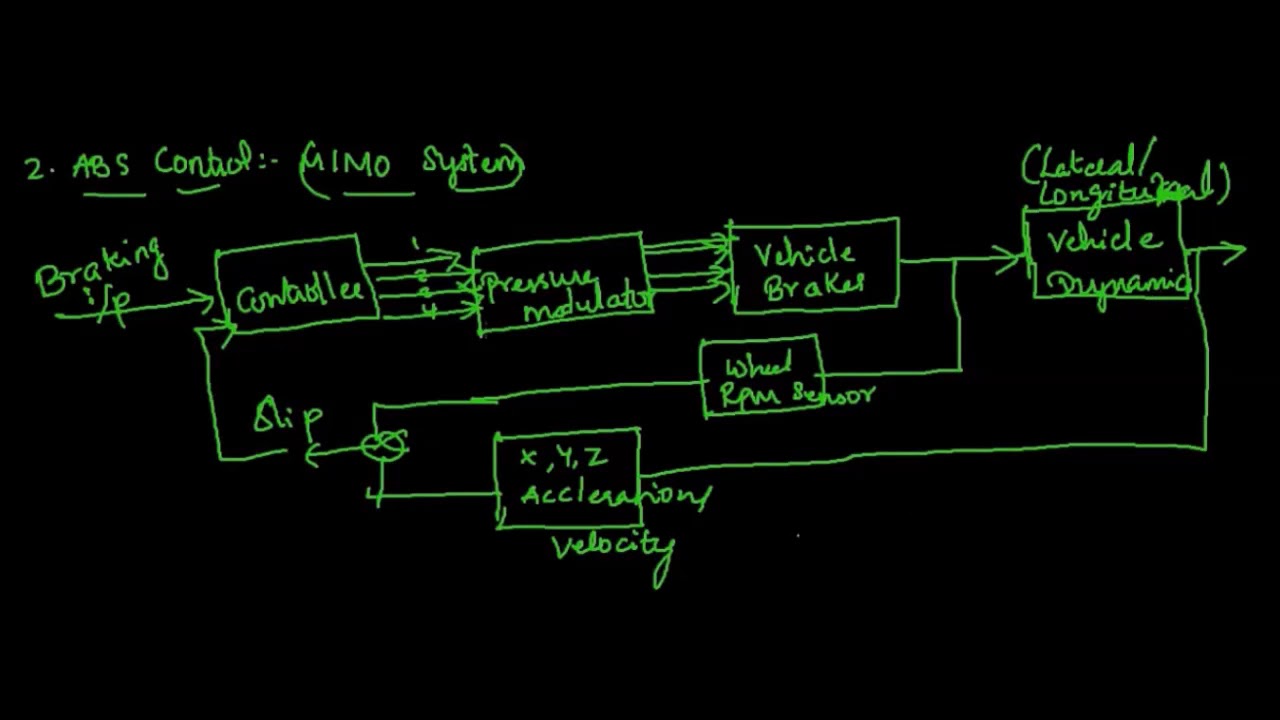 2. ABS Control:- (MIMO System)
(Lateral/
Longitudinal)
Braking
i/p
Controller
1
2
3
4
Pressure
modulator
Vehicle
Brakes
Vehicle
Dynamic
Wheel
Rpm Sensor
Slip
X, Y, Z
Accleration/
Velocity